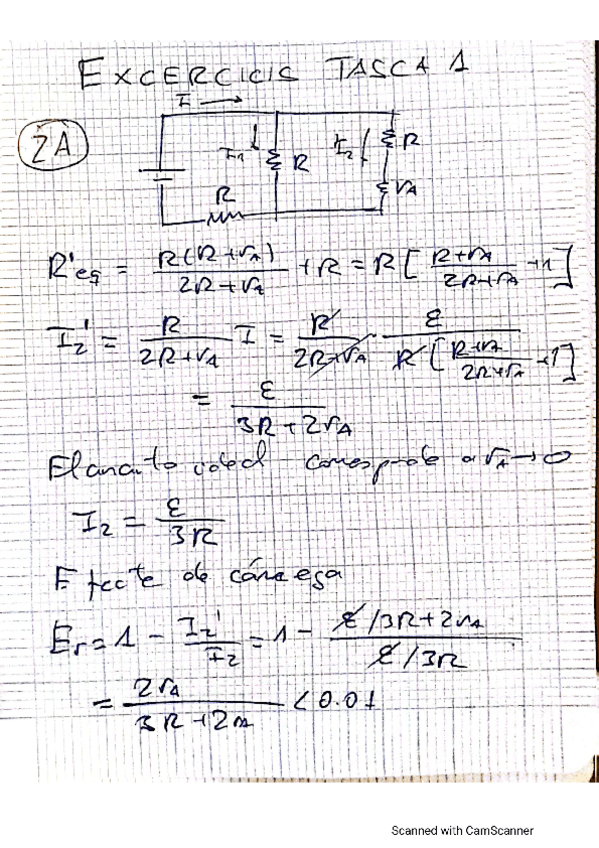 EXCERCICIS TASCA 1
I →
2A
I₁ R I₂ R
R rA
R'eq = R(R+rA)/(2R+rA) + R = R[(R+rA)/(2R+rA) + 1]
I₂' = R/(2R+rA) I = R/(2R+rA) · ε/(R[(R+rA)/(2R+rA) + 1])
= ε/(3R+2rA)
El circuito ideal corresponde a rA → 0
I₂ = ε/3R
Efecte de càrrega
Er = 1 - I₂'/I₂ = 1 - (ε/3R+2rA)/(ε/3R)
= 2rA/(3R+2rA) < 0.01
Scanned with CamScanner